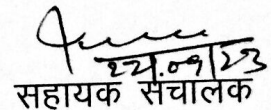 22.09/23
सहायक संचालक